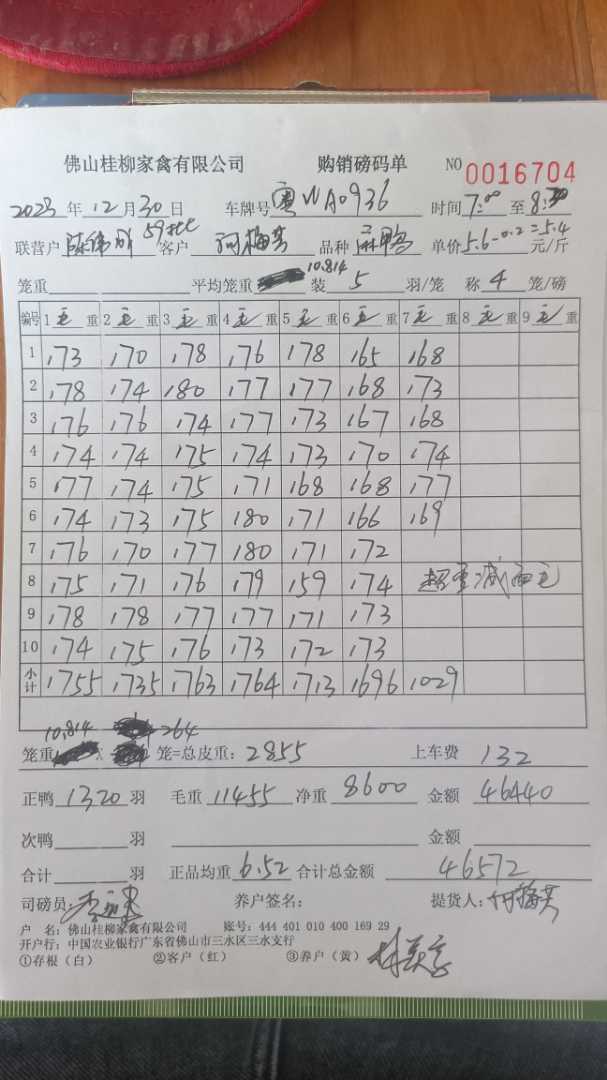 佛山桂柳家禽有限公司 购销磅码单 NO 0016704
2023年12月30日 车牌号 粤WA0936 时间 7:00 至 8:30
联营户 59批 客户 何梅芳 品种 麻鸭 单价 5.6-0.2=5.4 元/斤
笼重 平均笼重 10.814 装 5 羽/笼 称 4 笼/磅
编号 1毛重 2毛重 3毛重 4毛重 5毛重 6毛重 7毛重 8毛重 9毛重
1 173 170 178 176 178 165 168
2 178 174 180 177 177 168 173
3 176 176 174 177 173 167 168
4 174 174 175 174 173 170 174
5 177 174 175 171 168 168 177
6 174 173 175 180 171 166 169
7 176 170 177 180 171 172
8 175 171 176 179 159 174 超重减两毛
9 178 178 177 177 171 173
10 174 175 176 173 172 173
小计 1755 1735 1763 1764 1713 1696 1029
笼重 10.814 X 264 笼=总皮重: 2855 上车费 132
正鸭 1320 羽 毛重 11455 净重 8600 金额 46440
次鸭 羽 金额
合计 羽 正品均重 6.52 合计总金额 46572
司磅员: 养户签名: 提货人: 何梅芳
户 名: 佛山桂柳家禽有限公司 账号: 444 401 010 400 169 29
开户行: 中国农业银行广东省佛山市三水区三水支行
①存根(白) ②客户(红) ③养户(黄)